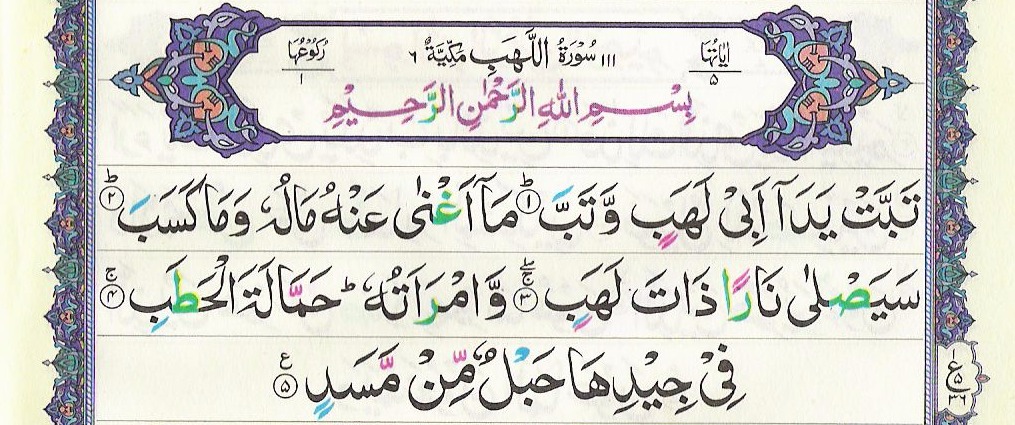 اٰیَاتُهَا ۵ ١١١ سُوْرَةُ اللَّهَبِ مَكِّيَّةٌ ٦ رُكُوْعُهَا ١
بِسْمِ اللهِ الرَّحْمٰنِ الرَّحِيْمِ
تَبَّتْ يَدَآ اَبِىْ لَهَبٍ وَّتَبَّ ؕ﴿۱﴾ مَاۤ اَغْنٰى عَنْهُ مَالُهٗ وَمَا كَسَبَ ؕ﴿۲﴾
سَيَصْلٰى نَارًا ذَاتَ لَهَبٍ ۚۖ﴿۳﴾ وَّامْرَاَتُهٗ ؕ حَمَّالَةَ الْحَطَبِ ۚ﴿۴﴾
فِىْ جِيْدِهَا حَبْلٌ مِّنْ مَّسَدٍ ﴿۵﴾ ع
ع ۵ ۳۶